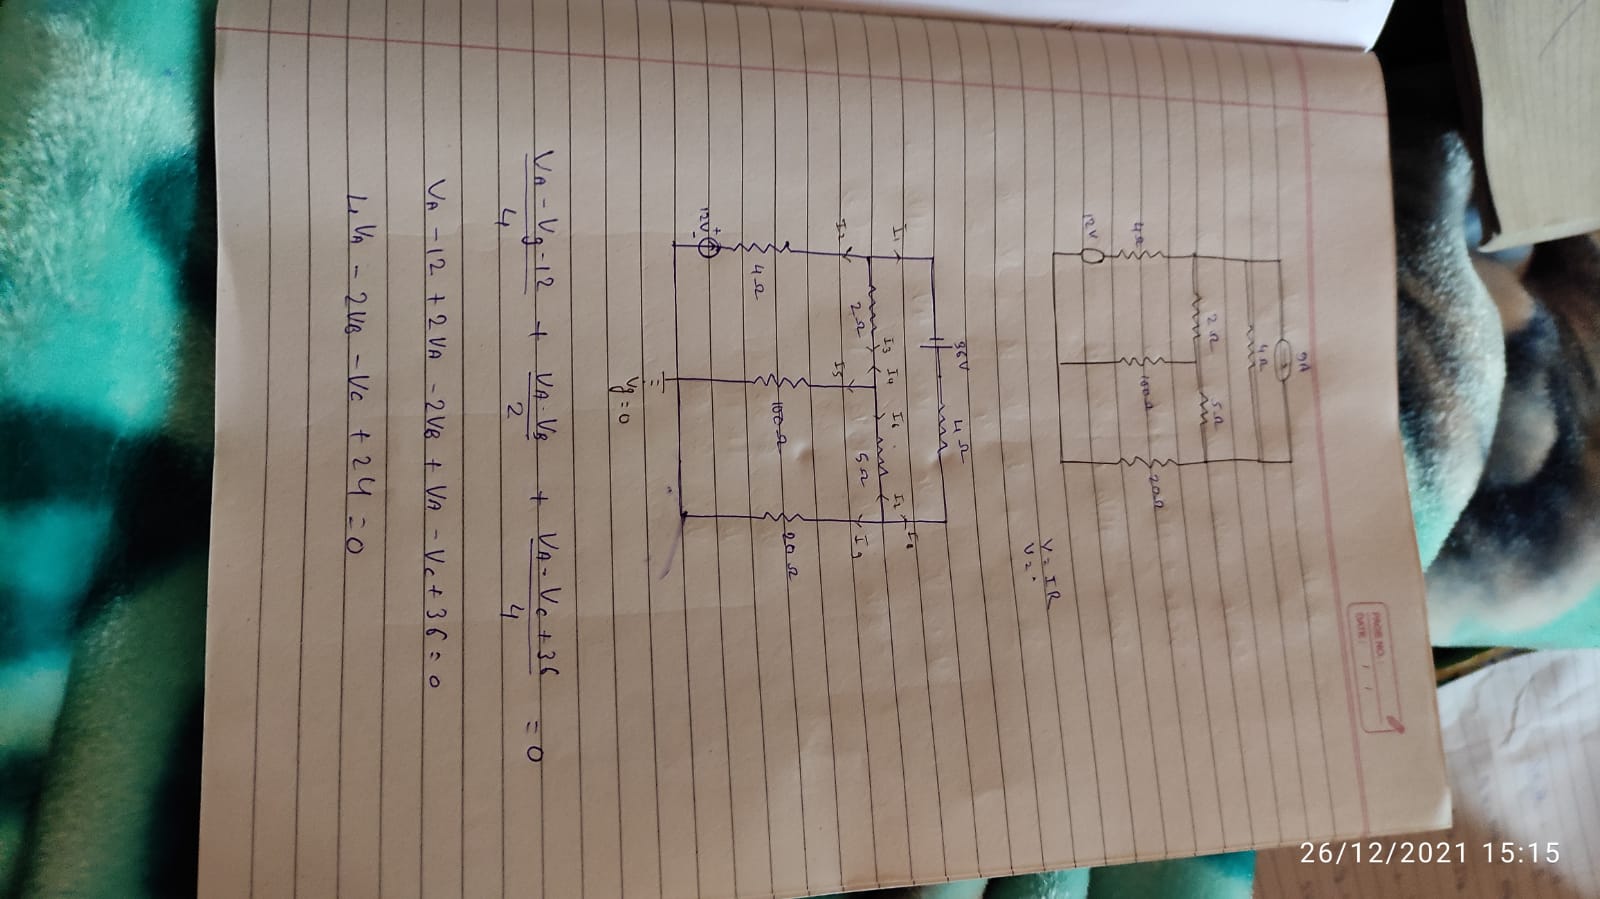 PAGE NO.:
DATE: / /
9A
4Ω
2Ω
5Ω
4Ω
100Ω
20Ω
12V
V = IR
36V
4Ω
I1
I8
I3
I4
I6
I7
2Ω
5Ω
I2
I5
I9
4Ω
100Ω
20Ω
12V
+
-
Vg = 0
VA - Vg - 12 + VA - VB + VA - VC + 36 = 0
4 2 4
VA - 12 + 2VA - 2VB + VA - VC + 36 = 0
4VA - 2VB - VC + 24 = 0
26/12/2021 15:15